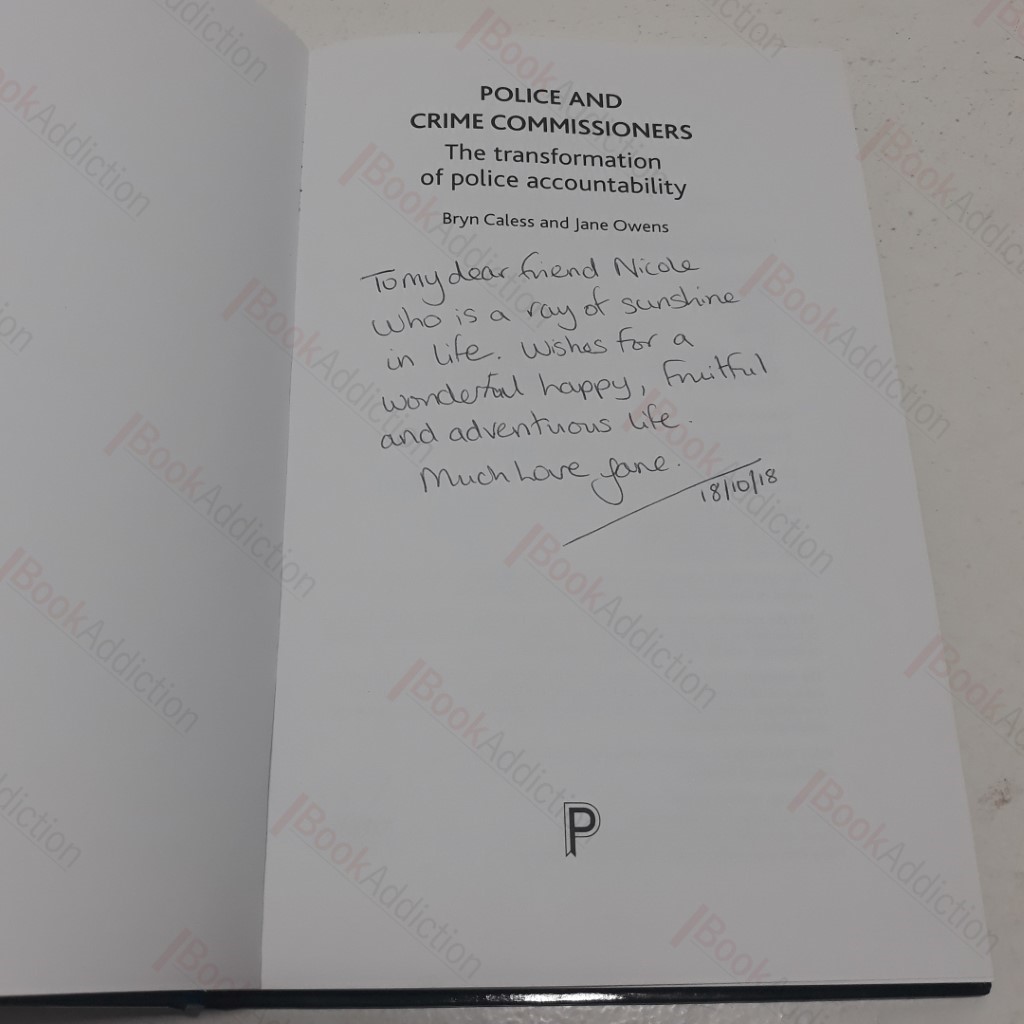 POLICE AND
CRIME COMMISSIONERS
The transformation
of police accountability
Bryn Caless and Jane Owens
To my dear friend Nicole
who is a ray of sunshine
in life. Wishes for a
wonderful happy, fruitful
and adventuous life.
Much Love Jane.
18/10/18
P
BookAddiction